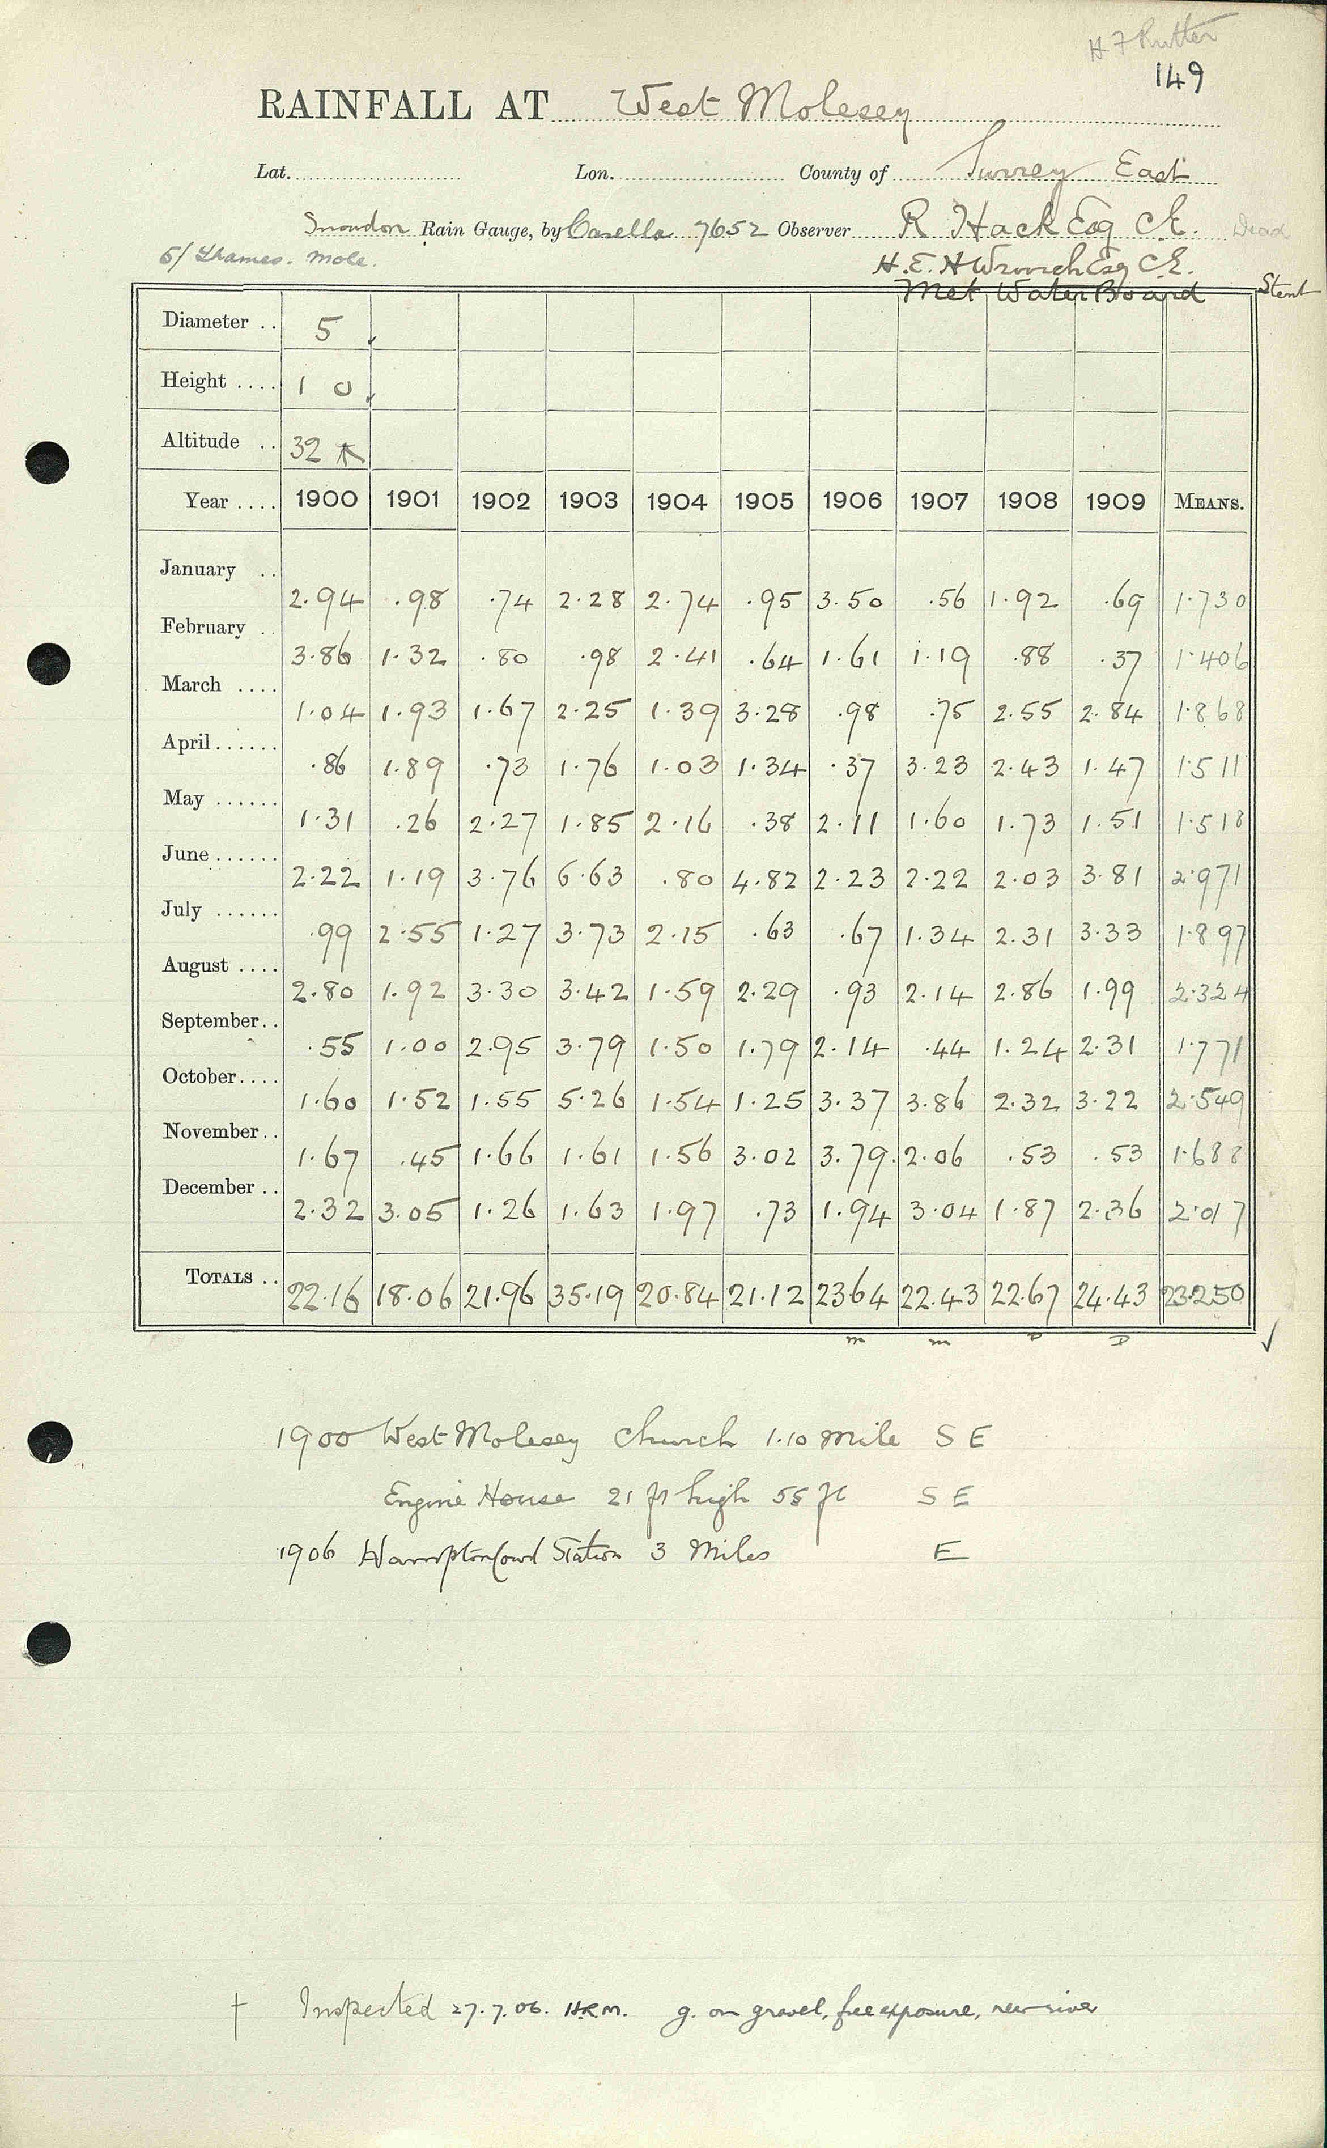 H F Rutter
149
RAINFALL AT West Molesey
Lat. Lon. County of Surrey East
Snowdon Rain Gauge, by Casella 7652 Observer R Hack Esq C.E. Dead
5/ Thames. Mole.
H.E.H Esq C.E.
Met Water Board Stent
Diameter .. 5
Height .... 1 0
Altitude .. 32
Year .... 1900 1901 1902 1903 1904 1905 1906 1907 1908 1909 MEANS.
January .. 2.94 .98 .74 2.28 2.74 .95 3.50 .56 1.92 .69 1.730
February .. 3.86 1.32 .80 .98 2.41 .64 1.61 1.19 .88 .37 1.406
March .... 1.04 1.93 1.67 2.25 1.39 3.28 .98 .75 2.55 2.84 1.868
April...... .86 1.89 .73 1.76 1.03 1.34 .37 3.23 2.43 1.47 1.511
May ...... 1.31 .26 2.27 1.85 2.16 .38 2.11 1.60 1.73 1.51 1.518
June...... 2.22 1.19 3.76 6.63 .80 4.82 2.23 2.22 2.03 3.81 2.971
July ...... .99 2.55 1.27 3.73 2.15 .63 .67 1.34 2.31 3.33 1.897
August .... 2.80 1.92 3.30 3.42 1.59 2.29 .93 2.14 2.86 1.99 2.324
September.. .55 1.00 2.95 3.79 1.50 1.79 2.14 .44 1.24 2.31 1.771
October.... 1.60 1.52 1.55 5.26 1.54 1.25 3.37 3.86 2.32 3.22 2.549
November.. 1.67 .45 1.66 1.61 1.56 3.02 3.79. 2.06 .53 .53 1.688
December .. 2.32 3.05 1.26 1.63 1.97 .73 1.94 3.04 1.87 2.36 2.017
TOTALS .. 22.16 18.06 21.96 35.19 20.84 21.12 23 64 22.43 22.67 24.43 23.250
m m D D ✓
1900 West Molesey Church 1.10 Mile S E
Engine House 21 ft high 55 ft S E
1906 Hampton Court Station 3 Miles E
† Inspected 27.7.06. H.R.M. g. on gravel, free exposure, near river